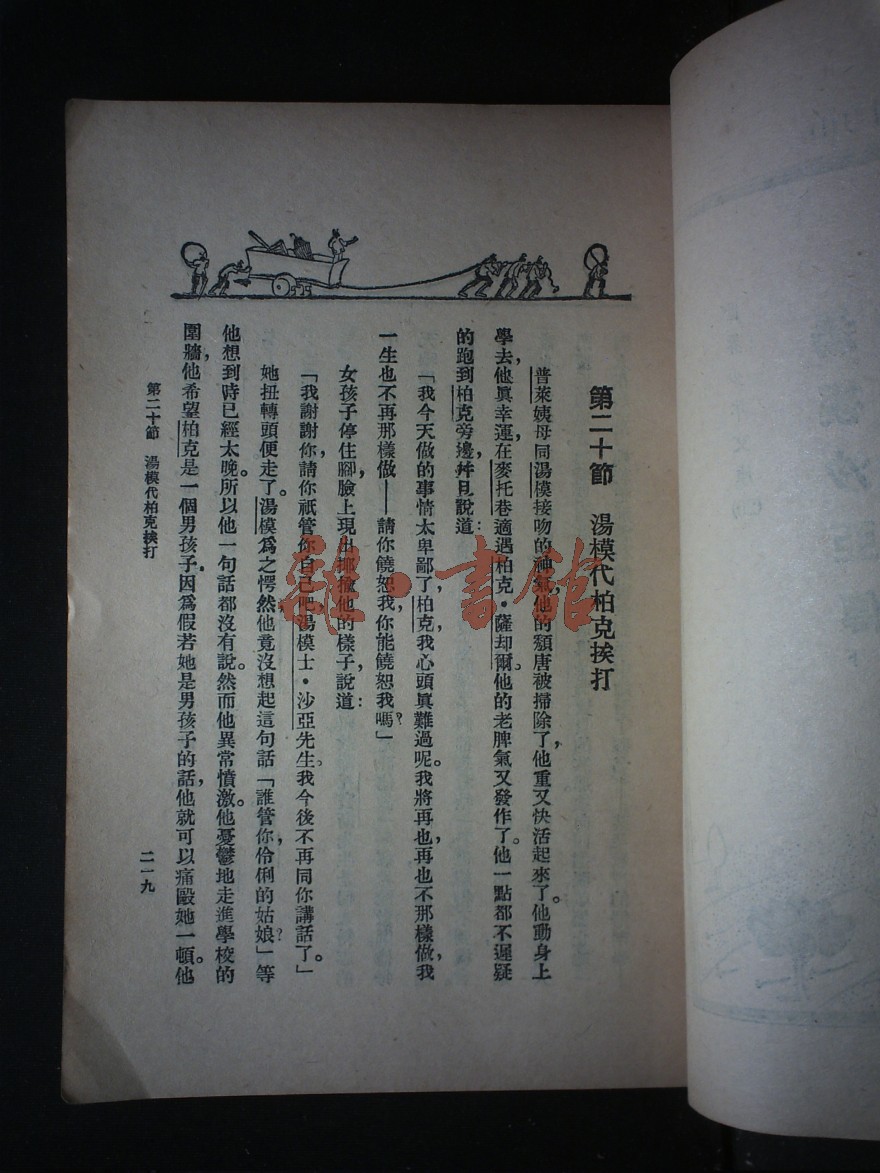 第二十節　湯模代柏克挨打
普萊姨母同湯模接吻的神氣，他的頹唐被掃除了，他重又快活起來了。他動身上
學去，他眞幸運，在麥托巷適遇柏克·薩却爾。他的老脾氣又發作了。他一點都不遲疑
的跑到柏克旁邊，幷且說道：
「我今天做的事情太卑鄙了，柏克，我心頭眞難過呢。我將再也，再也不那樣做，我
一生也不再那樣做——請你饒恕我，你能饒恕我嗎？」
女孩子停住腳，臉上現出揶揄他的樣子，說道：
「我謝謝你，請你祇管你自己吧，湯模士·沙亞先生。我今後不再同你講話了。」
她扭轉頭便走了。湯模爲之愕然，他竟沒想起這句話「誰管你，伶俐的姑娘？」等
他想到時已經太晚。所以他一句話都沒有說。然而他異常憤激。他憂鬱地走進學校的
圍牆，他希望柏克是一個男孩子。因爲假若她是男孩子的話，他就可以痛毆她一頓。他
第二十節　湯模代柏克挨打
二一九
雜·書館